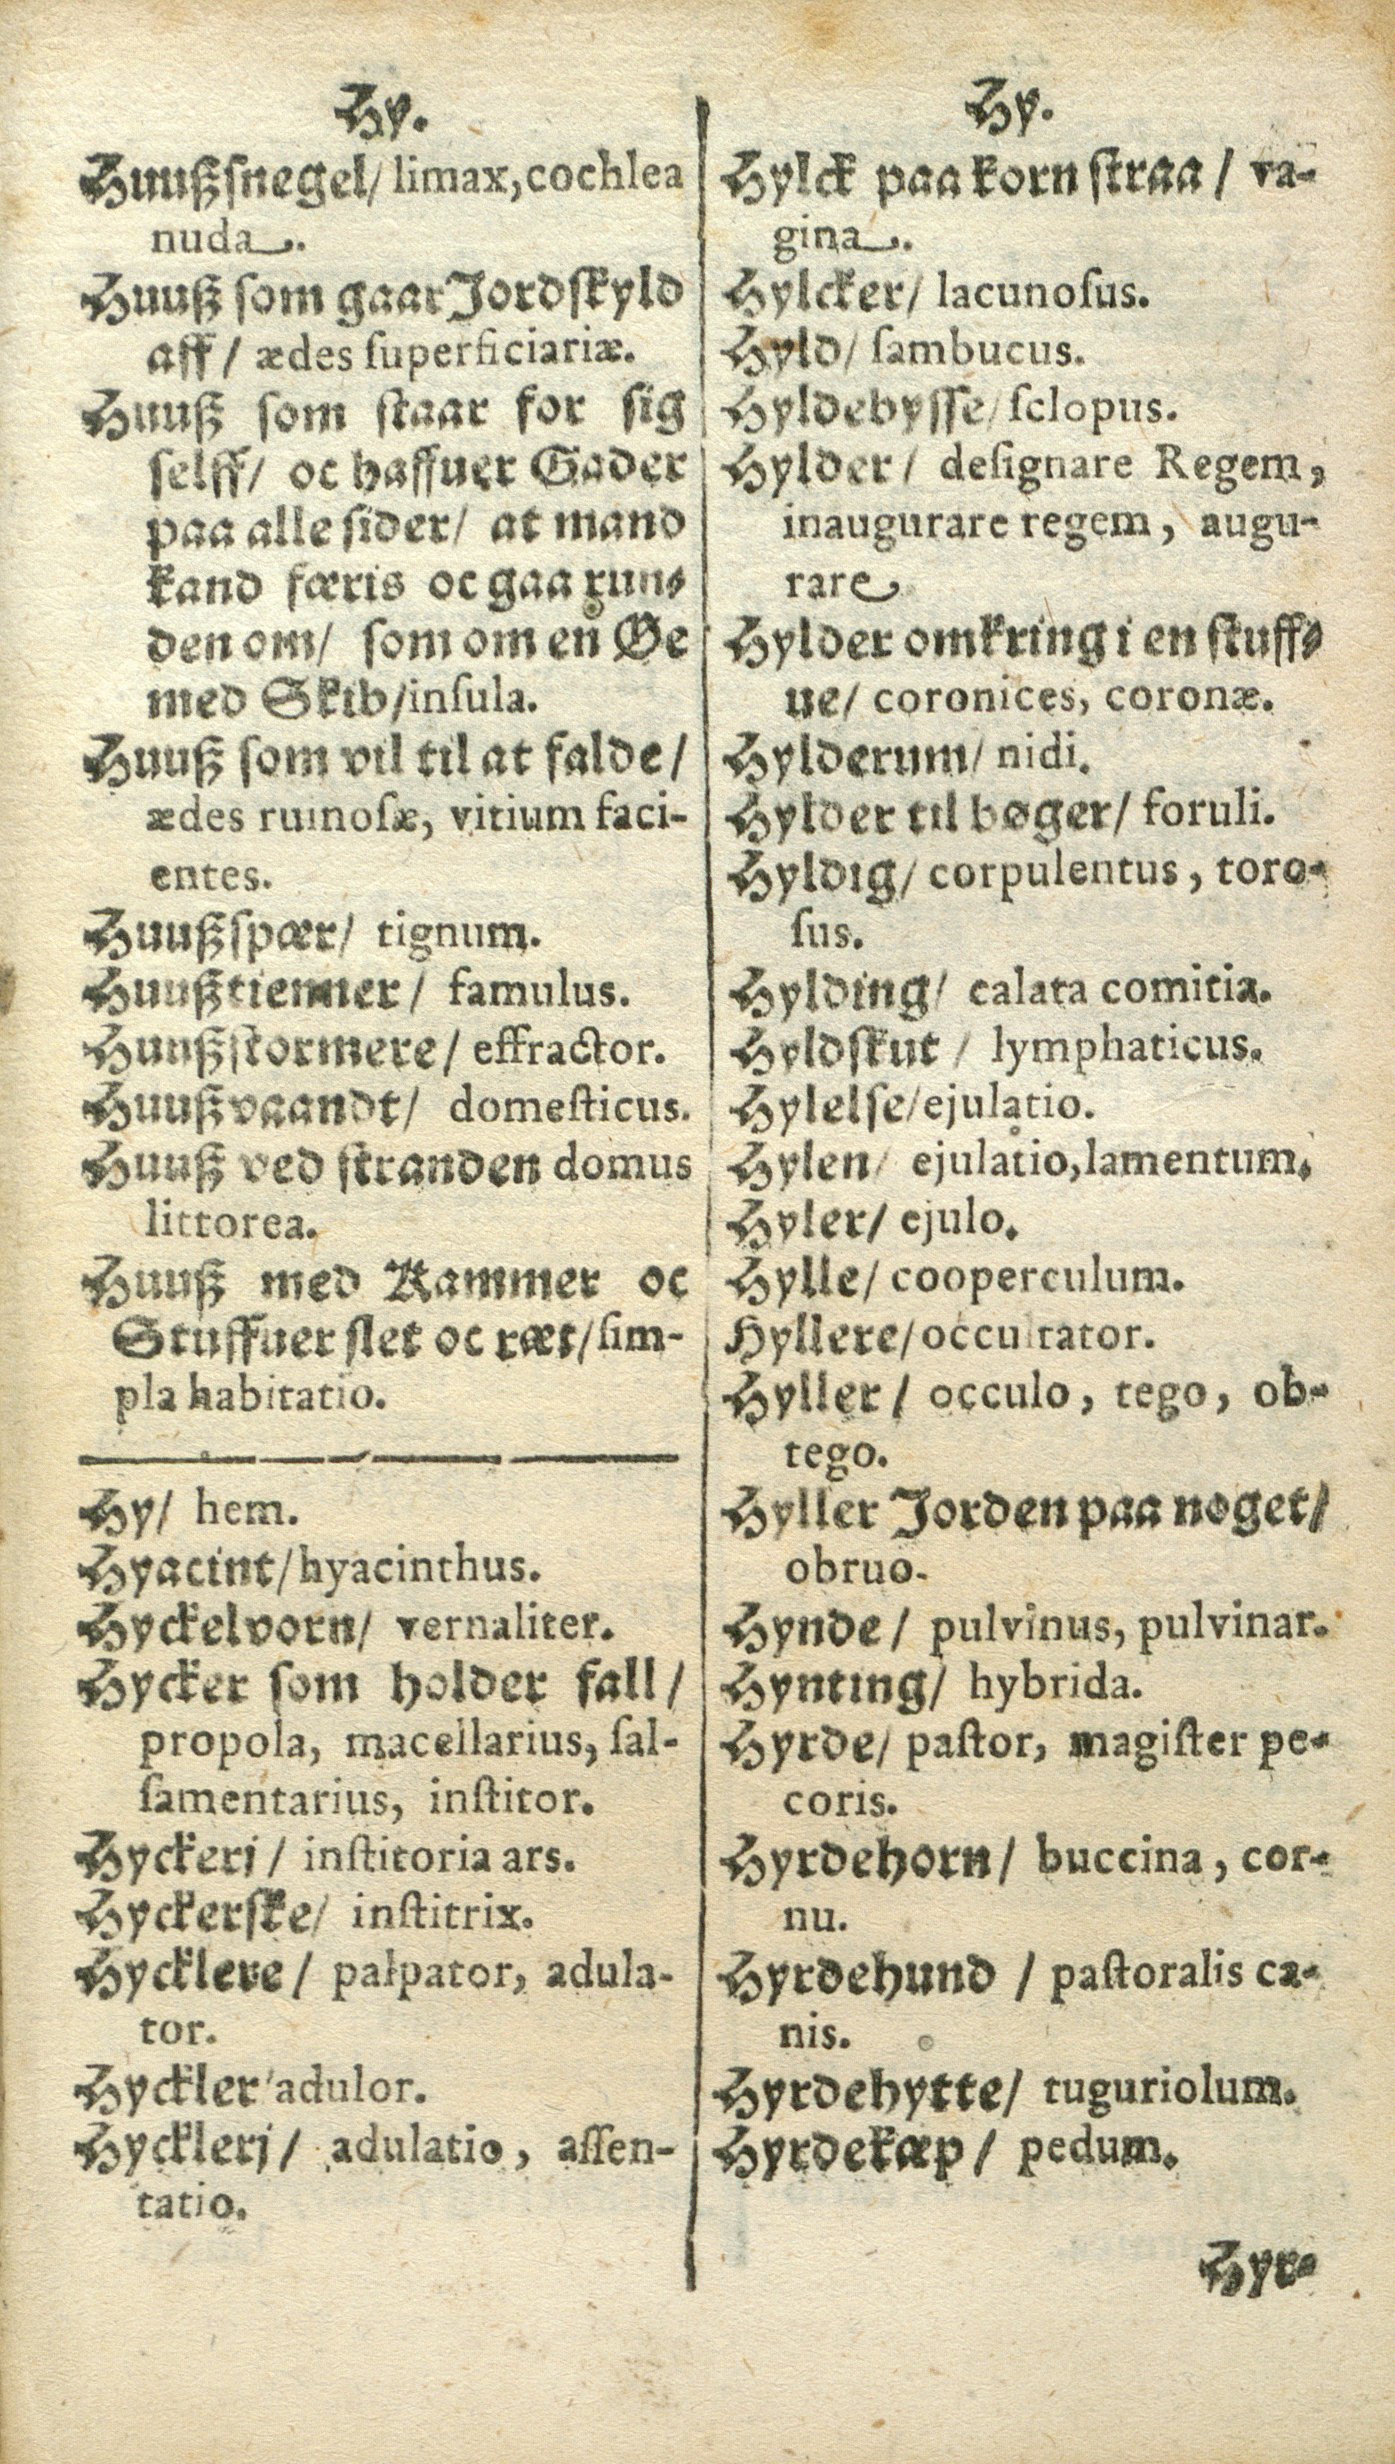 Hy.
Huußsnegel/ limax, cochlea
nuda.
Huuß som gaar Jordskyld
aff / ædes ſuperficiariæ.
Huuß som staar for sig
selff/ oc haffuer Gader
paa alle sider/ at mand
kand færis oc gaa run-
den om/ som om en Øe
med Skib/ inſula.
Huuß som vil til at falde/
ædes ruinoſæ, vitium faci-
entes.
Huußspær/ tignum.
Huußtienner/ famulus.
Huußstormere/ effractor.
Huußvaandt/ domeſticus.
Huuß ved stranden domus
littorea.
Huuß med Kammer oc
Stuffuer slet oc ræt/ ſim-
pla habitatio.
Hy/ hem.
Hyacint/ hyacinthus.
Hyckelvorn/ vernaliter.
Hycker som holder fall/
propola, macellarius, ſal-
ſamentarius, inſtitor.
Hyckerj/ inſtitoria ars.
Hyckerske/ inſtitrix.
Hycklere/ palpator, adula-
tor.
Hyckler/ adulor.
Hycklerj/ adulatio, aſſen-
tatio.
Hy.
Hylck paa korn straa/ va-
gina.
Hylcker/ lacunoſus.
Hyld/ ſambucus.
Hyldebysse/ ſclopus.
Hylder/ deſignare Regem,
inaugurare regem, augu-
rare
Hylder omkring i en stuff-
ue/ coronices, coronæ.
Hylderum/ nidi.
Hylder til bøger/ foruli.
Hyldig/ corpulentus, toro-
ſus.
Hylding/ calata comitia.
Hyldskut/ lymphaticus.
Hylelse/ ejulatio.
Hylen/ ejulatio, lamentum.
Hyler/ ejulo.
Hylle/ cooperculum.
Hyllere/ occultator.
Hyller/ occulo, tego, ob-
tego.
Hyller Jorden paa noget/
obruo.
Hynde/ pulvinus, pulvinar.
Hynting/ hybrida.
Hyrde/ paſtor, magiſter pe-
coris.
Hyrdehorn/ buccina, cor-
nu.
Hyrdehund/ paſtoralis ca-
nis.
Hyrdehytte/ tuguriolum.
Hyrdekæp/ pedum.
Hyr-